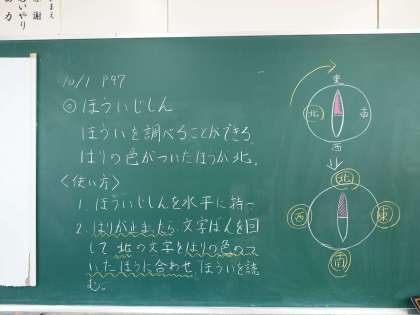 まえ
思いやり
感謝
努力
10/1 P97
◎ほういじしん
ほういを調べることができる.
はりの色がついたほうが北.
〈使い方〉
1. ほういじしんを水平に持つ
2. はりが止まったら、文字ばんを回
して 北の文字をはりの色のつ
いたほうに合わせ ほういを読
む。
東
北
南
西
北
西
東
南